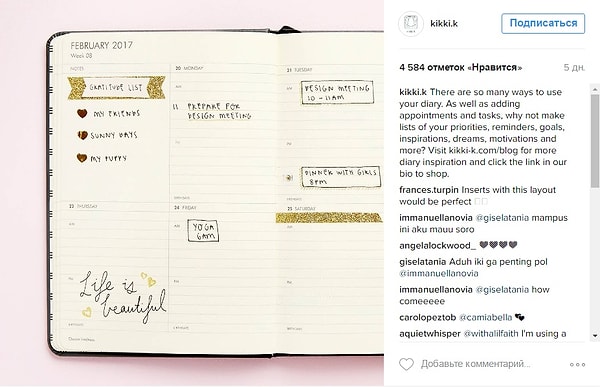 FEBRUARY 2017
Week 08
NOTES
GRATITUDE LIST
MY FRIENDS
SUNNY DAYS
MY PUPPY
20 MONDAY
11 PREPARE FOR
DESIGN MEETING
21 TUESDAY
DESIGN MEETING
10 - 11AM
DINNER WITH GIRLS
8PM
23 THURSDAY
Life is
beautiful
24 FRIDAY
YOGA
6AM
25 SATURDAY
kikki.k
Подписаться
4 584 отметок «Нравится»
5 дн.
kikki.k There are so many ways to
use your diary. As well as adding
appointments and tasks, why not make
lists of your priorities, reminders, goals,
inspirations, dreams, motivations and
more? Visit kikki-k.com/blog for more
diary inspiration and click the link in our
bio to shop.
frances.turpin Inserts with this layout
would be perfect
immanuellanovia @giselatania mampus
ini aku mauu soro
angelalockwood_ 🖤🖤🖤🖤
giselatania Aduh iki ga penting pol
@immanuellanovia
immanuellanovia @giselatania how
comeeeee
carolopeztob @camiabella
aquietwhisper @withalilfaith I'm using a
Добавьте комментарий...